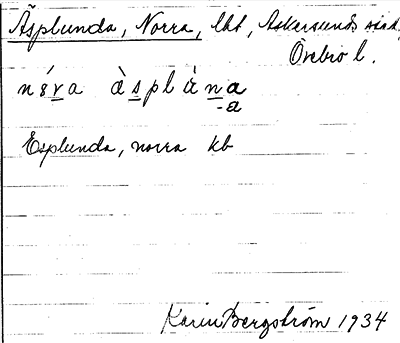 Äsplunda, Norra, lht, Askersunds stad,
Örebro l.
àsplùna
-a
Esplunda, norra kb
Karin Bergström 1934